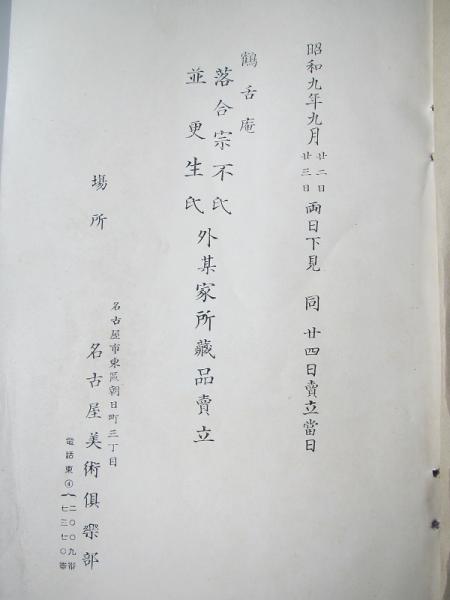 昭和九年九月 廿二日 廿三日 両日下見 同 廿四日賣立當日
鶴舌庵
落合宗不氏
並更生氏
外某家所藏品賣立
場所
名古屋市東區朝日町三丁目
名古屋美術俱樂部
電話東④
二〇〇九番
七三七〇番